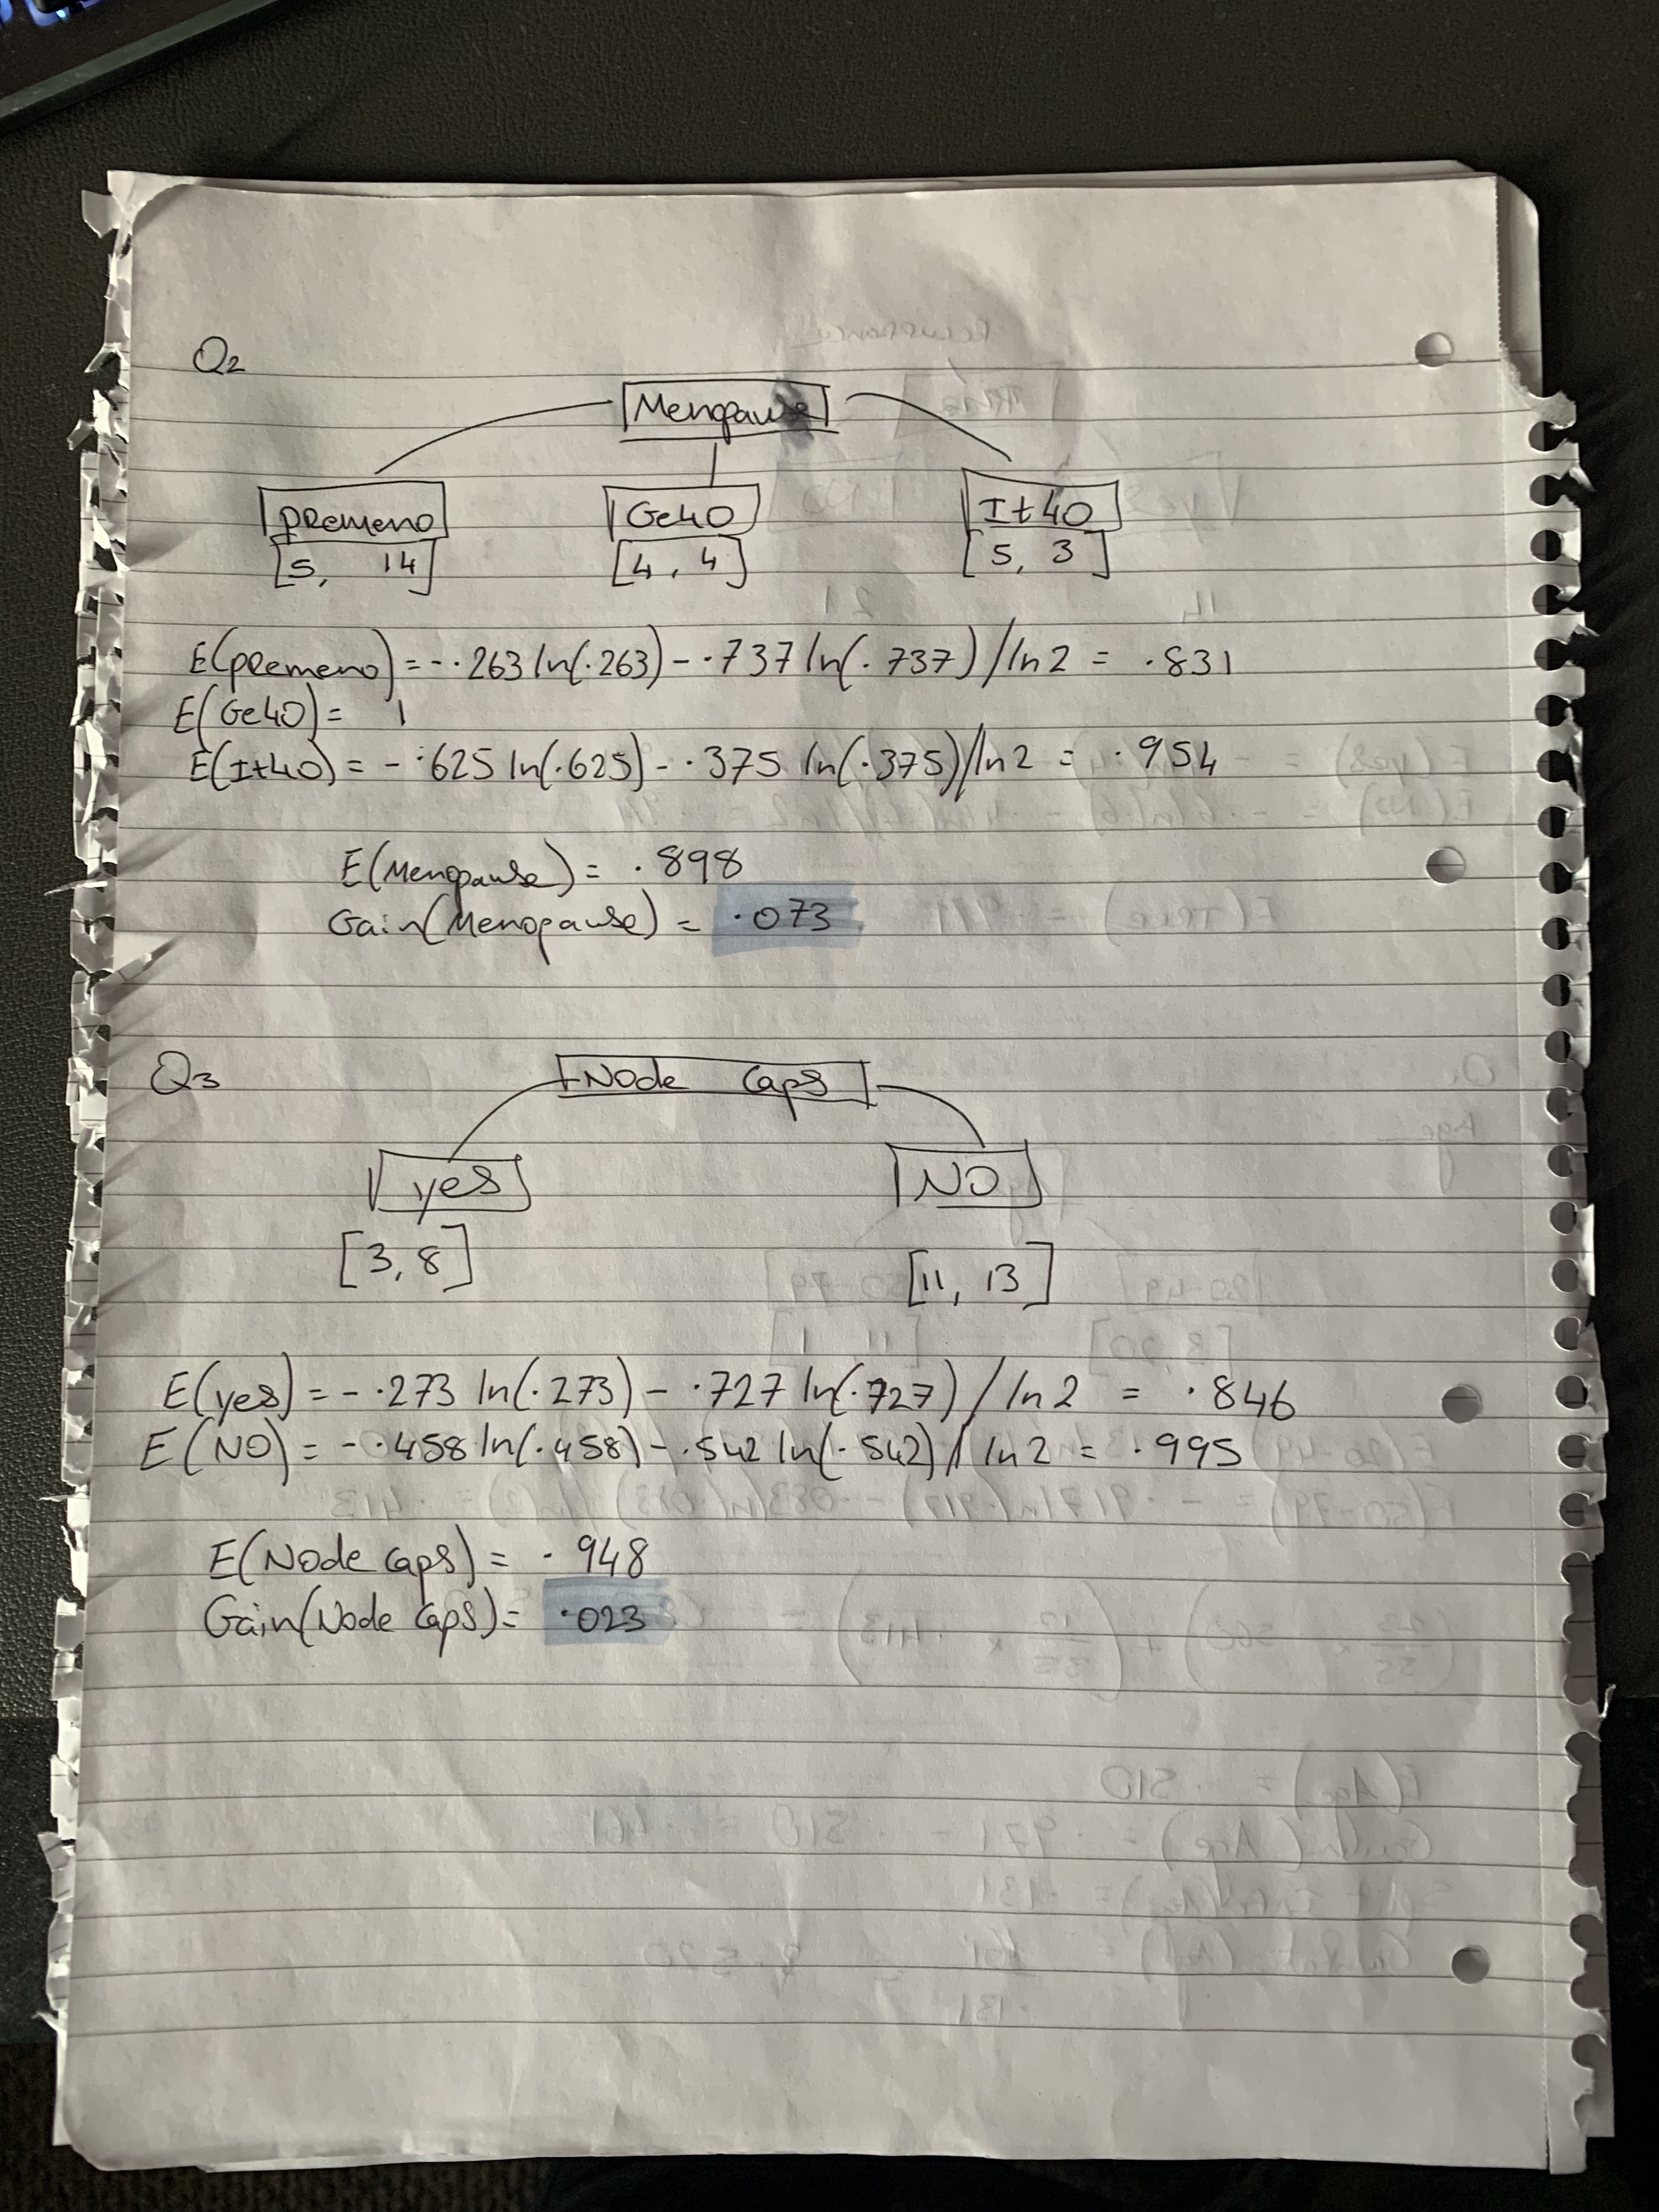 Q2
Menopause
premeno Ge40 It40
[5, 14] [4, 4] [5, 3]
E(premeno) = -.263 ln(.263) - .737 ln(.737) / ln 2 = .831
E(Ge40) = 1
E(It40) = -.625 ln(.625) - .375 ln(.375) / ln 2 = .954
E(Menopause) = .898
Gain(Menopause) = .073
Q3
Node Caps
yes NO
[3, 8] [11, 13]
E(yes) = -.273 ln(.273) - .727 ln(.727) / ln 2 = .846
E(NO) = -.458 ln(.458) - .542 ln(.542) / ln 2 = .995
E(Node Caps) = .948
Gain(Node Caps) = .023